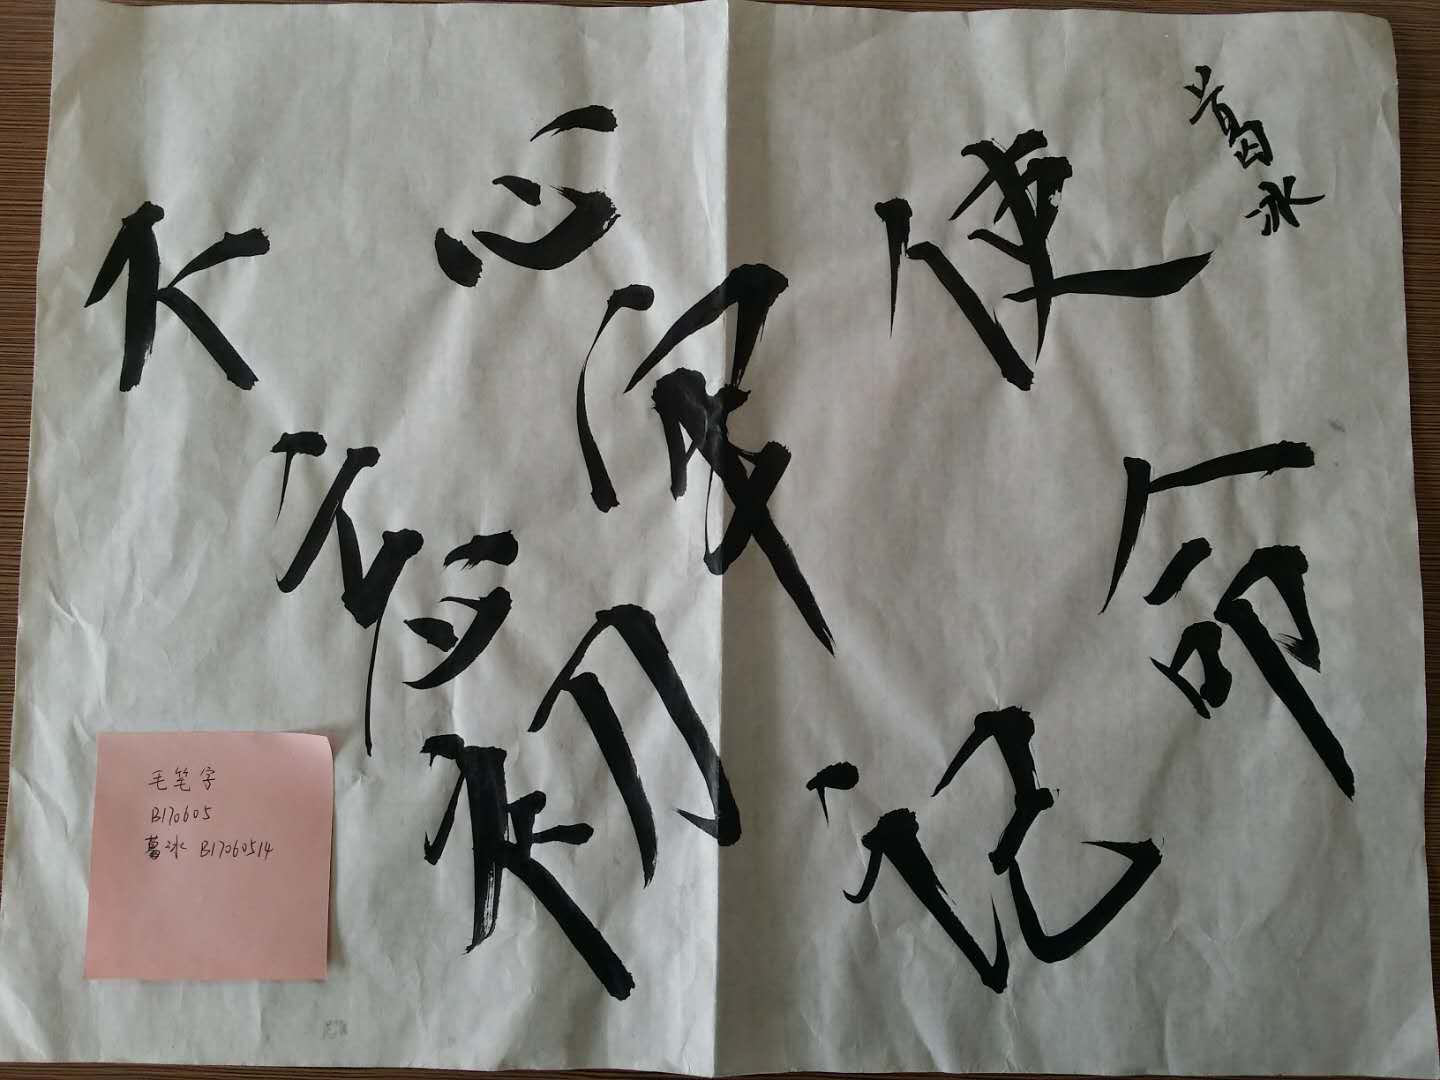 不忘初
心牢记
使命
葛冰
毛笔字
B170605
葛冰 B17060514